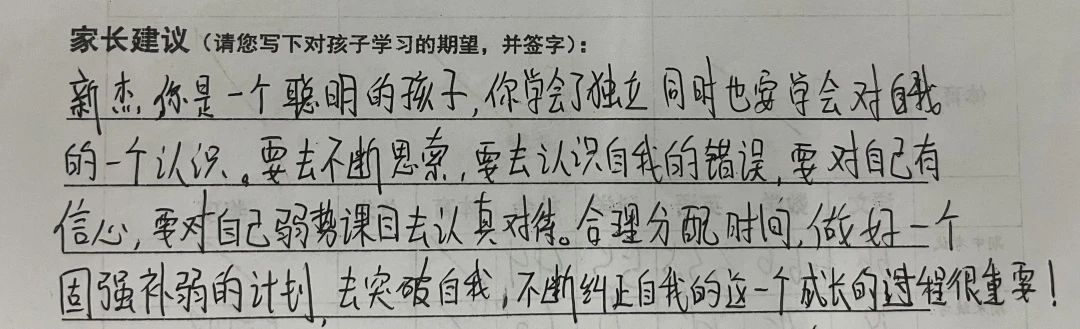 家长建议（请您写下对孩子学习的期望，并签字）：
新杰，你是一个聪明的孩子，你学会了独立 同时也要学会对自我
的一个认识。要去不断思索，要去认识自我的错误，要对自己有
信心，要对自己弱势课目去认真对待。合理分配时间，做好一个
固强补弱的计划，去突破自我，不断纠正自我的这一个成长的过程很重要！